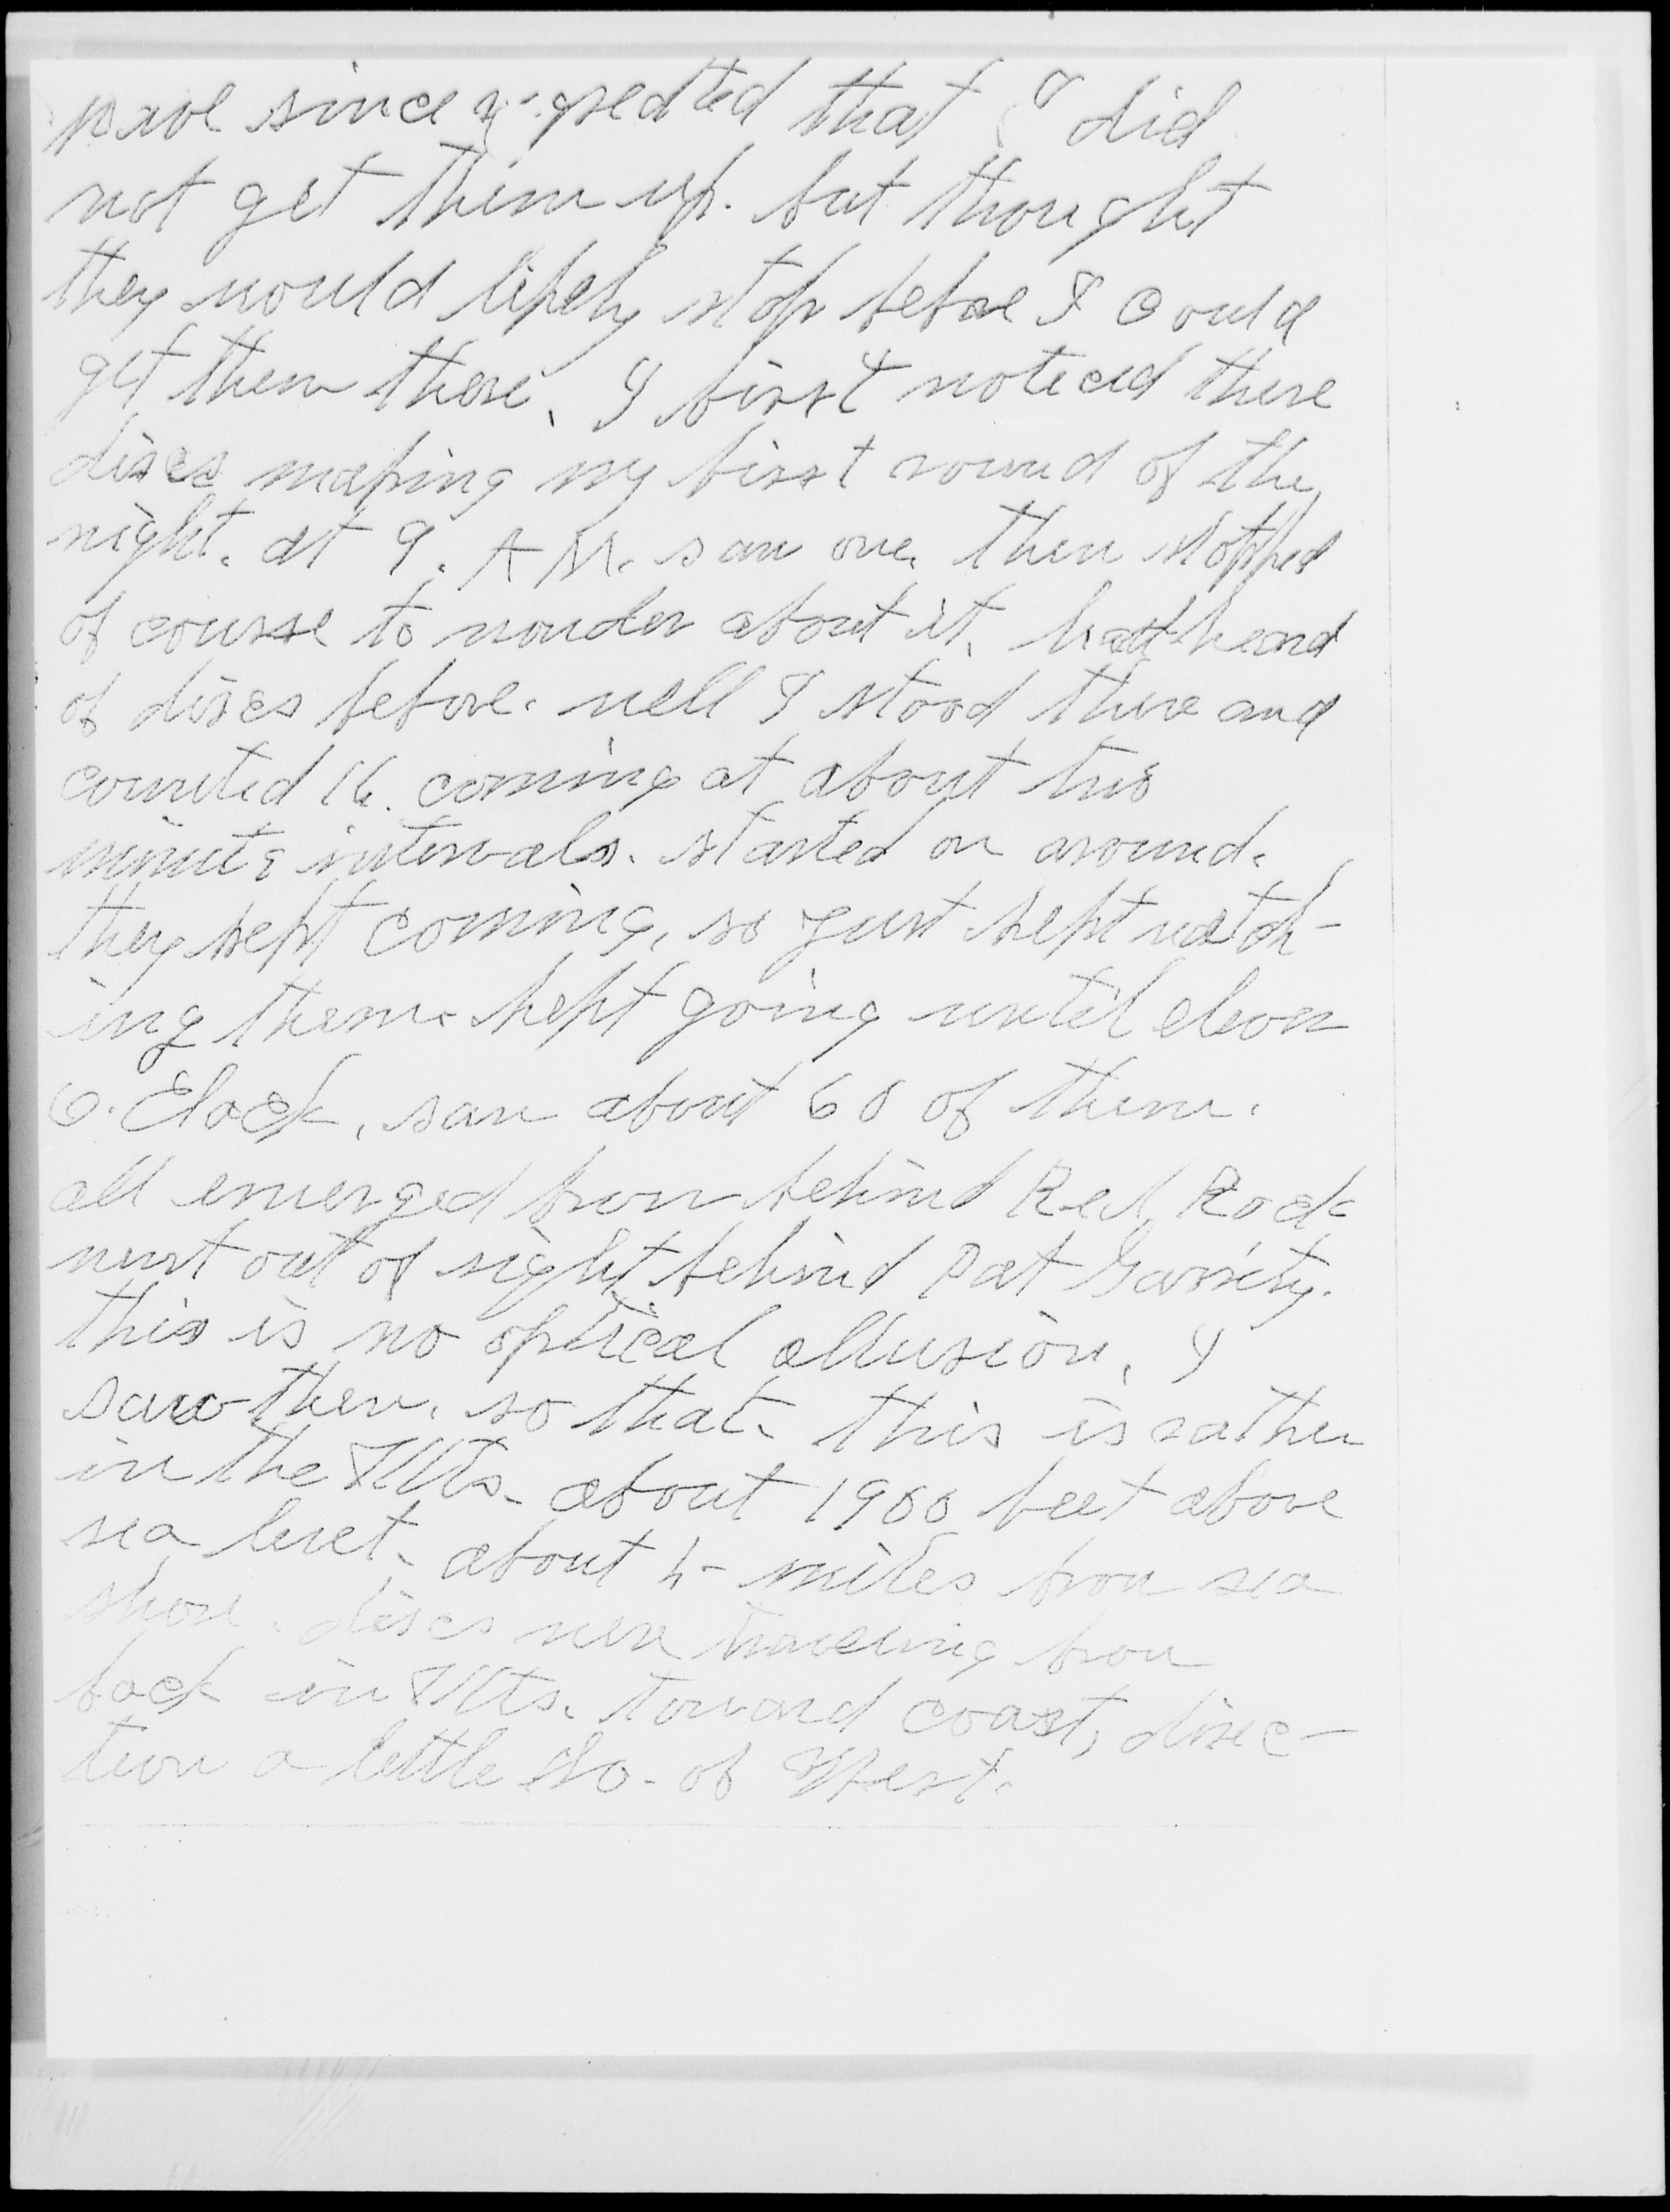 have since regretted that I did
not get them up. but thought
they would likely stop before I could
get them there. I first noticed these
discs making my first round of the
night. at 9. A M. saw one. then stopped
of course to wonder about it. heard
of discs before. well I stood there and
counted 16. coming at about two
minute intervals. started on around.
they kept coming, so just kept watch-
ing them. kept going until eleven
O. Clock, saw about 60 of them.
all emerged from behind Red Rock
went out of sight behind Pat Garrity.
this is no optical allusion. I
saw them. so that. this is rather
in the Mts. about 1900 feet above
sea level. about miles from sea
shore. discs were traveling from
back in Mts. toward coast, direc-
tion a little So. of West.